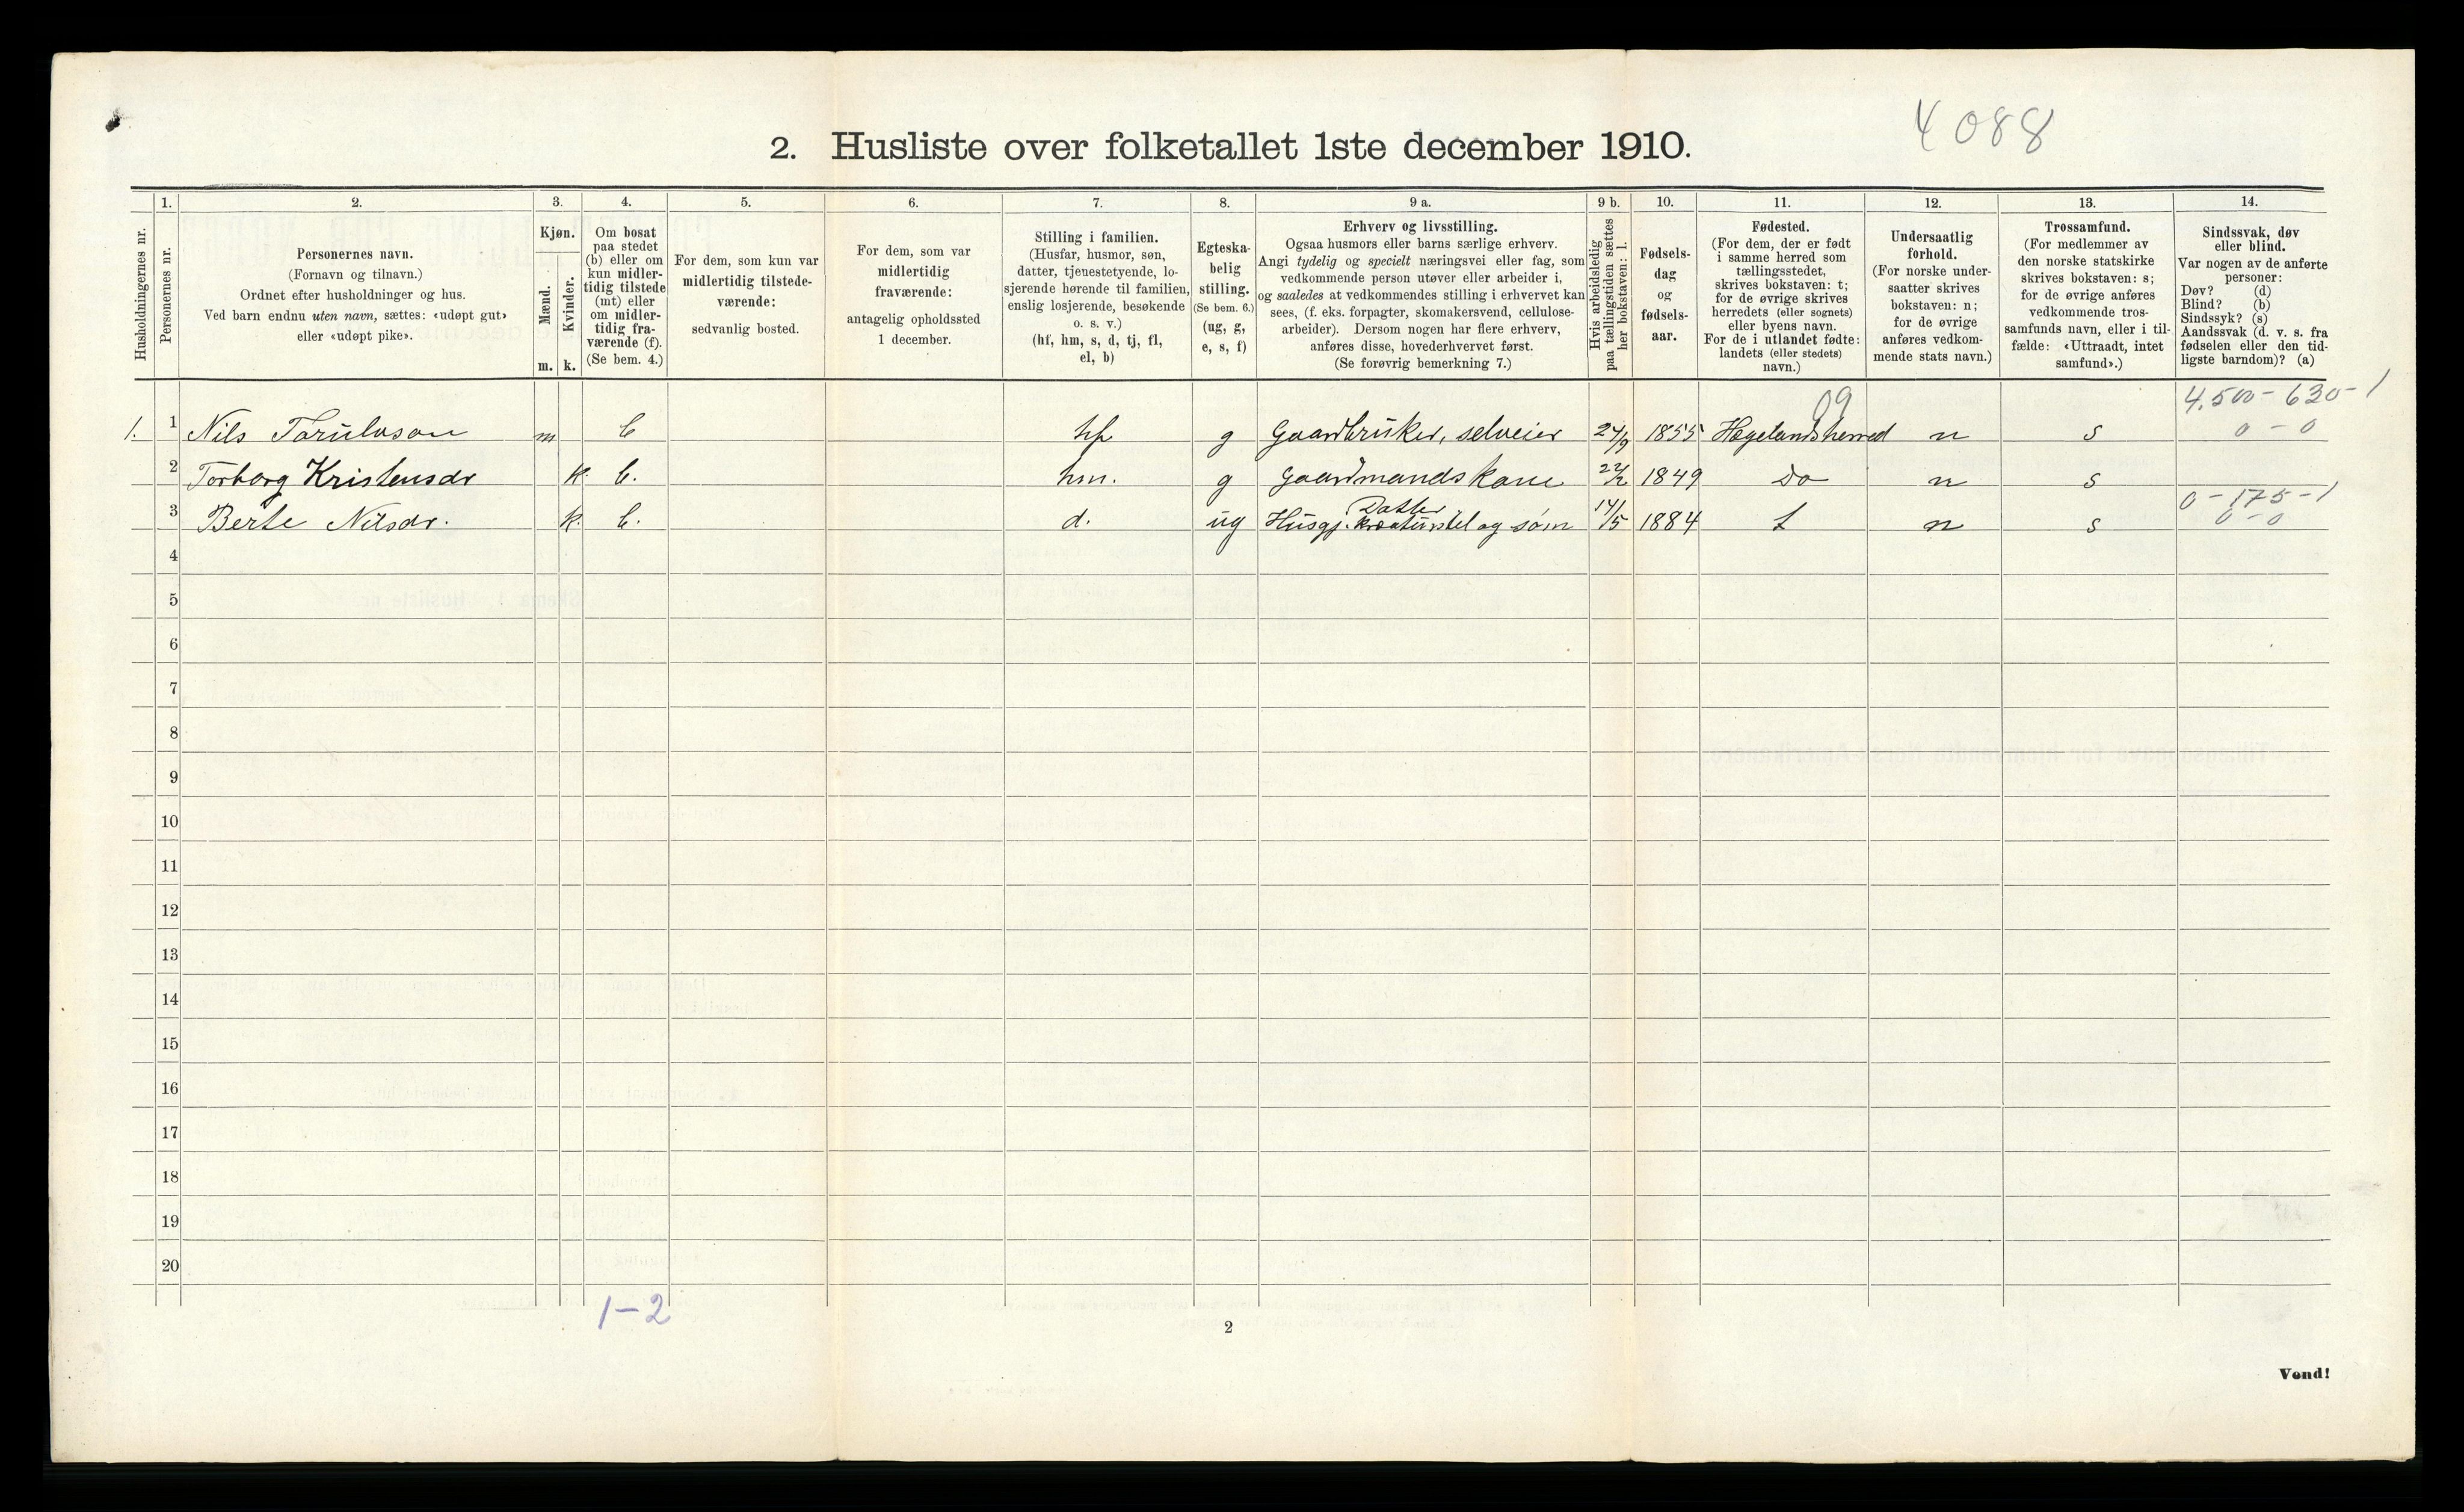 4088
2. Husliste over folketallet 1ste december 1910.
Husholdningernes nr.
1.
Personernes nr.
2.
Personernes navn.
(Fornavn og tilnavn.)
Ordnet efter husholdninger og hus.
Ved barn endnu uten navn, sættes: «udøpt gut»
eller «udøpt pike».
3.
Kjøn.
Mænd.
Kvinder.
m. k.
4.
Om bosat
paa stedet
(b) eller om
kun midler-
tidig tilstede
(mt) eller
om midler-
tidig fra-
værende (f).
(Se bem. 4.)
5.
For dem, som kun var
midlertidig tilstede-
værende:
sedvanlig bosted.
6.
For dem, som var
midlertidig
fraværende:
antagelig opholdssted
1 december.
7.
Stilling i familien.
(Husfar, husmor, søn,
datter, tjenestetyende, lo-
sjerende hørende til familien,
enslig losjerende, besøkende
o. s. v.)
(hf, hm, s, d, tj, fl,
el, b)
8.
Egteska-
belig
stilling.
(Se bem. 6.)
(ug, g,
e, s, f)
9 a.
Erhverv og livsstilling.
Ogsaa husmors eller barns særlige erhverv.
Angi tydelig og specielt næringsvei eller fag, som
vedkommende person utøver eller arbeider i,
og saaledes at vedkommendes stilling i erhvervet kan
sees, (f. eks. forpagter, skomakersvend, cellulose-
arbeider). Dersom nogen har flere erhverv,
anføres disse, hovederhvervet først.
(Se forøvrig bemerkning 7.)
9 b.
Hvis arbeidsledig
paa tællingstiden sættes
her bokstaven: l.
10.
Fødsels-
dag
og
fødsels-
aar.
11.
Fødested.
(For dem, der er født
i samme herred som
tællingsstedet,
skrives bokstaven: t;
for de øvrige skrives
herredets (eller sognets)
eller byens navn.
For de i utlandet fødte:
landets (eller stedets)
navn.)
12.
Undersaatlig
forhold.
(For norske under-
saatter skrives
bokstaven: n;
for de øvrige
anføres vedkom-
mende stats navn.)
13.
Trossamfund.
(For medlemmer av
den norske statskirke
skrives bokstaven: s;
for de øvrige anføres
vedkommende tros-
samfunds navn, eller i til-
fælde: «Uttraadt, intet
samfund».)
14.
Sindssvak, døv
eller blind.
Var nogen av de anførte
personer:
Døv? (d)
Blind? (b)
Sindssyk? (s)
Aandssvak (d. v. s. fra
fødselen eller den tid-
ligste barndom)? (a)
09 4.500-630-1
1. 1 Nils m b hf g Gaardbruker, selveier 24/9 1855 Hægelandsherred n s 0-0
2 Torborg Kristensdr k. b. hm. g gaardmandskone 22/2 1849 Do n s
Datter 0-175-1
3 Berte Nilsdr. k. b. d. ug Husgj. kreaturstel og søm 14/5 1884 t n s 0-0
4
5
6
7
8
9
10
11
12
13
14
15
16
17
18
19
20
1-2
2
Vend!